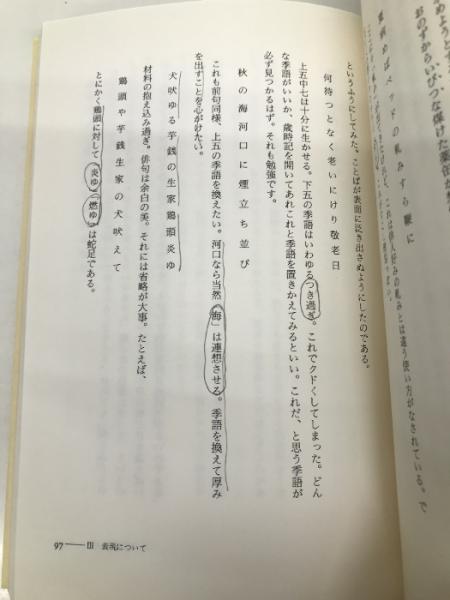 というふうにしてみた。ことばが表面に泛き出さぬようにしたのである。
何待つとなく老いにけり敬老日
上五中七は十分に生かせる。下五の季語はいわゆるつき過ぎ。これでクドくしてしまった。どん
な季語がいいか、歳時記を開いてあれこれと季語を置きかえてみるといい。これだ、と思う季語が
必ず見つかるはず。それも勉強です。
秋の海河口に煙立ち並び
これも前句同様、上五の季語を換えたい。河口なら当然「海」は連想させる。季語を換えて厚み
を出すことを心がけたい。
犬吠ゆる芋銭の生家鶏頭炎ゆ
材料の抱え込み過ぎ。俳句は余白の美。それには省略が大事。たとえば、
鶏頭や芋銭生家の犬吠えて
とにかく鶏頭に対して「炎ゆ」「燃ゆ」は蛇足である。
97──III 表現について